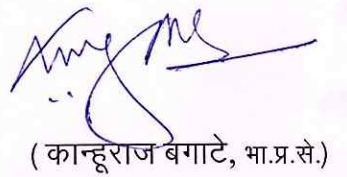 ( कान्हूराज बगाटे, भा.प्र.से.)